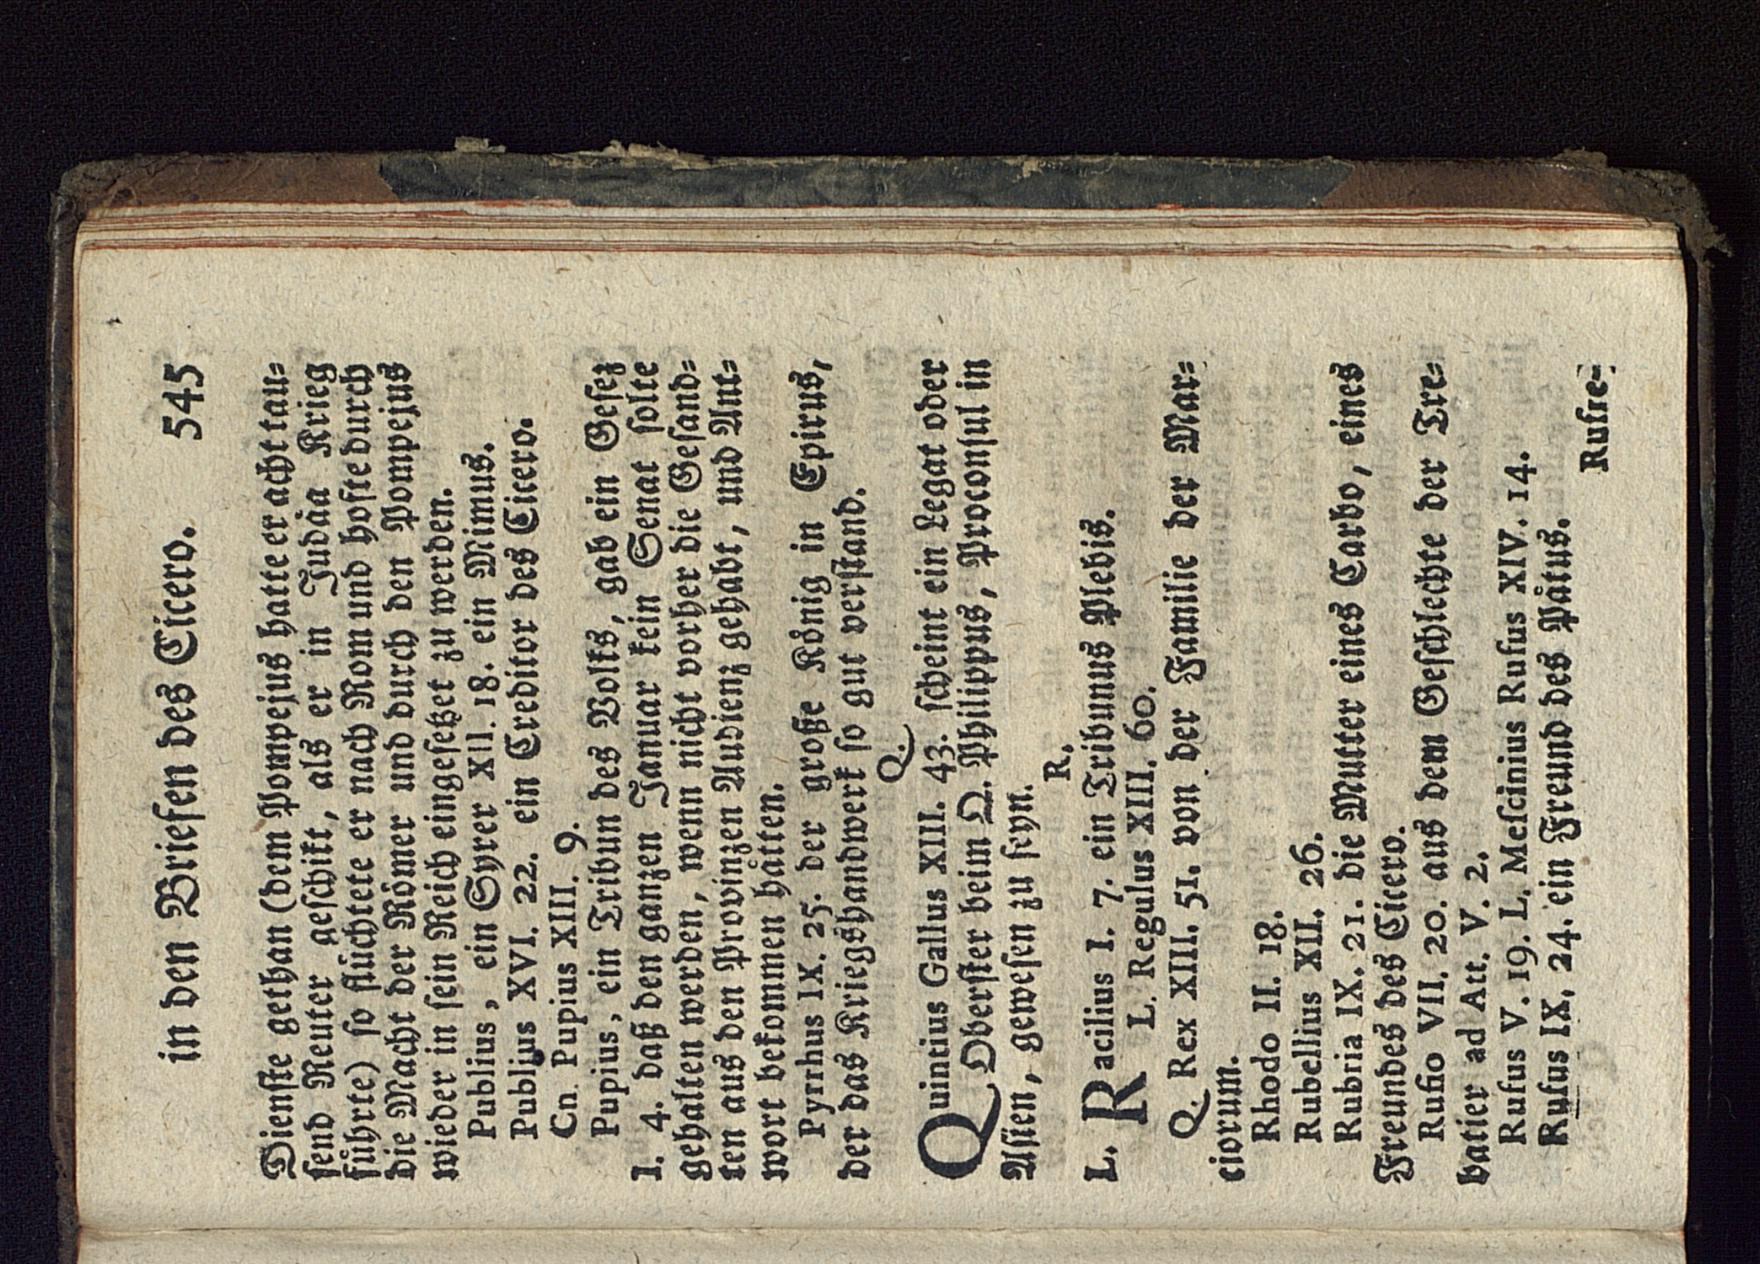 in den Briefen des Cicero. 545
Dienste gethan (dem Pompejus hatte er acht tau-
send Reuter geschikt, als er in Judäa Krieg
führte) so flüchtete er nach Rom und hofte durch
die Macht der Römer und durch den Pompejus
wieder in sein Reich eingesetzet zu werden.
Publius, ein Syrer XII. 18. ein Mimus.
Publius XVI. 22. ein Creditor des Cicero.
Cn. Pupius XIII. 9.
Pupius, ein Tribun des Volks, gab ein Gesez
I. 4. daß den ganzen Januar kein Senat solte
gehalten werden, wenn nicht vorher die Gesand-
ten aus den Provinzen Audienz gehabt, und Ant-
wort bekommen hätten.
Pyrrhus IX. 25. der große König in Epirus,
der das Kriegshandwerk so gut verstand.
Q.
Quintius Gallus XIII. 43. scheint ein Legat oder
Oberster beim Q. Philippus, Proconsul in
Asien, gewesen zu seyn.
R.
L. Racilius I. 7. ein Tribunus Plebis.
L. Regulus XIII. 60.
Q. Rex XIII. 51. von der Familie der Mar-
ciorum.
Rhodo II. 18.
Rubellius XII. 26.
Rubria IX. 21. die Mutter eines Carbo, eines
Freundes des Cicero.
Rufio VII. 20. aus dem Geschlechte der Tre-
batier ad Att. V. 2.
Rufus V. 19. L. Mescinius Rufus XIV. 14.
Rufus IX. 24. ein Freund des Pätus.
Rufre-